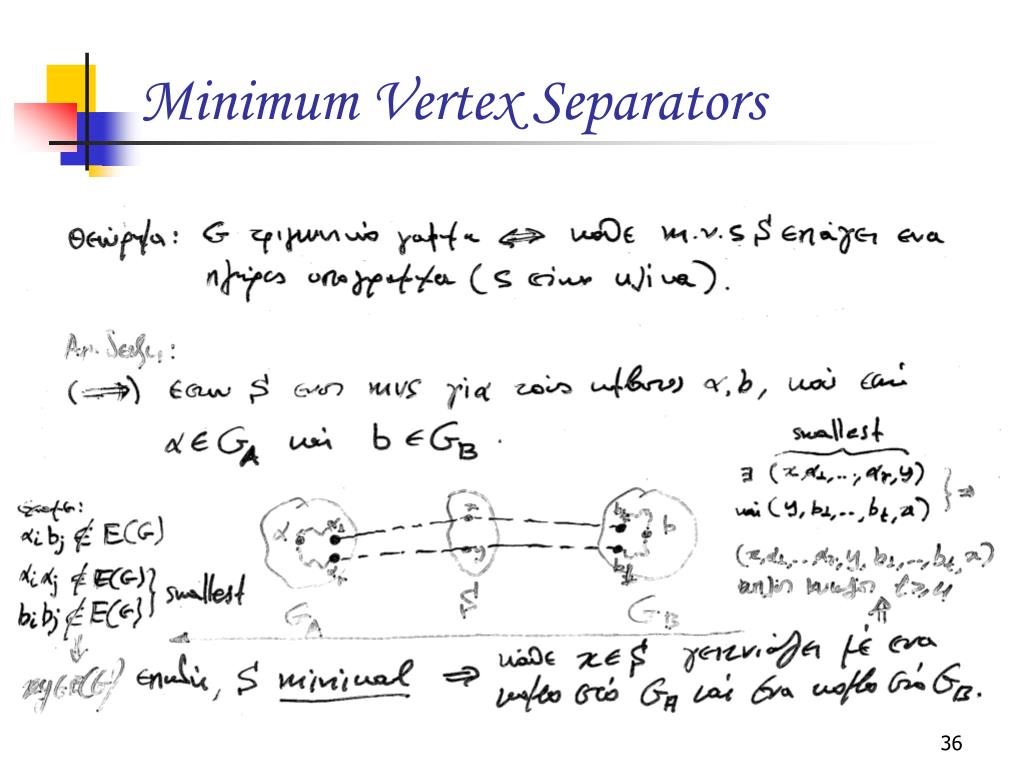 Minimum Vertex Separators
Θεώρημα: G τριγωνικό γράφημα ⟺ κάθε m.v.s S επάγει ενα
πλήρες υπογράφημα (S είναι κλίκα).
Αποδειξη:
(⟹) εστω S ενα mvs για τους κόμβους α, b, και εστω
α ∈ G_A και b ∈ G_B.
smallest
∃ (x, α₁, .., αᵣ, y)
και (y, b₁, .., bₜ, x)
⇒
(x, α₁, .. αᵣ, y, b₁, .., bₜ, x)
αᵢbⱼ ∉ E(G)
αᵢαⱼ ∉ E(G)
bᵢbⱼ ∉ E(G)
smallest
α α₁ αᵣ
x y
b₁ b bₜ
G_A
S
G_B
xy∈E(G)
επειδή, S minimal ⇒ κάθε x∈S γειτνιάζει με ενα
κομβο στο G_A και ενα κομβο στο G_B.
36